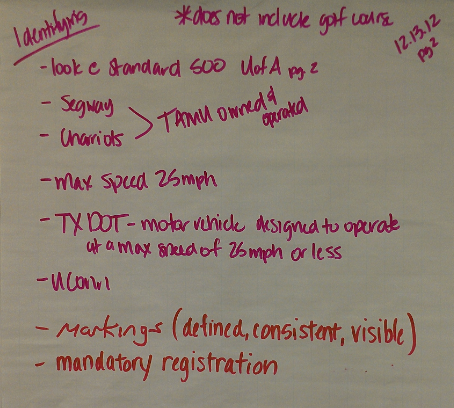 Identifying
*does not include golf course
12.13.12
pg 2
- look @ standard 500 U of A pg. 2
- Segway
- Charriots
TAMU owned &
operated
- max speed 25mph
- TXDOT - motor vehicle designed to operate
at a max speed of 25mph or less
- UConn
- markings (defined, consistent, visible)
- mandatory registration